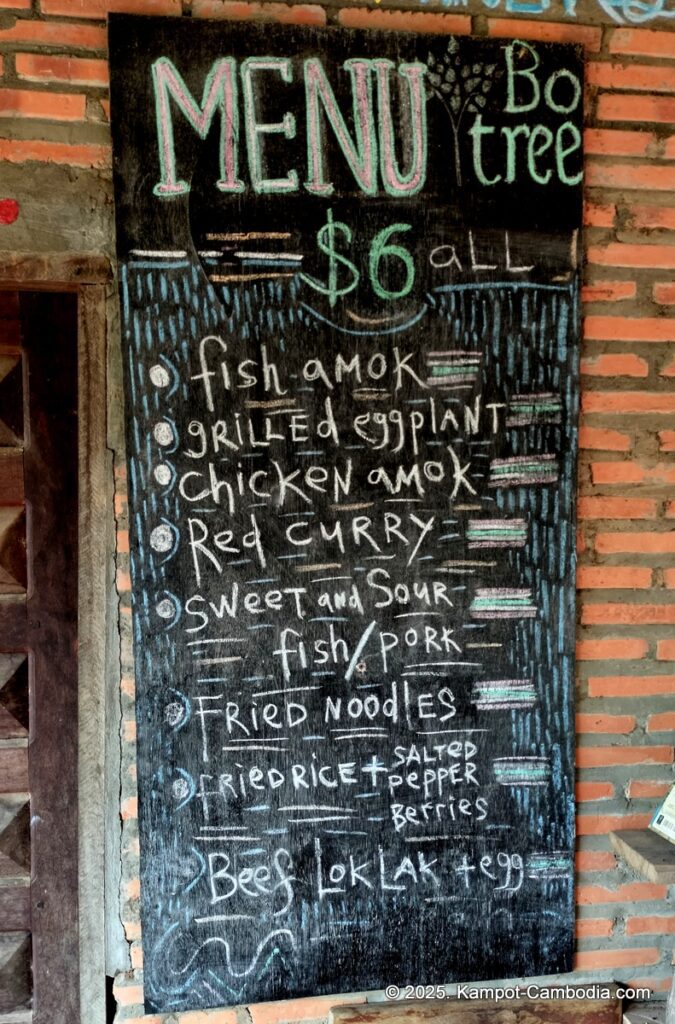 MENU
Bo
tree
$6 aLL
fish amok
gRILLEd eggplANT
Chicken amok
Red CURRY
SWEET and SOUR
fish/pORK
FRIED NOOdlES
fRIEDRICE + SALTED
pepper
Berries
Beef LokLAK + egg
© 2025. Kampot-Cambodia.com